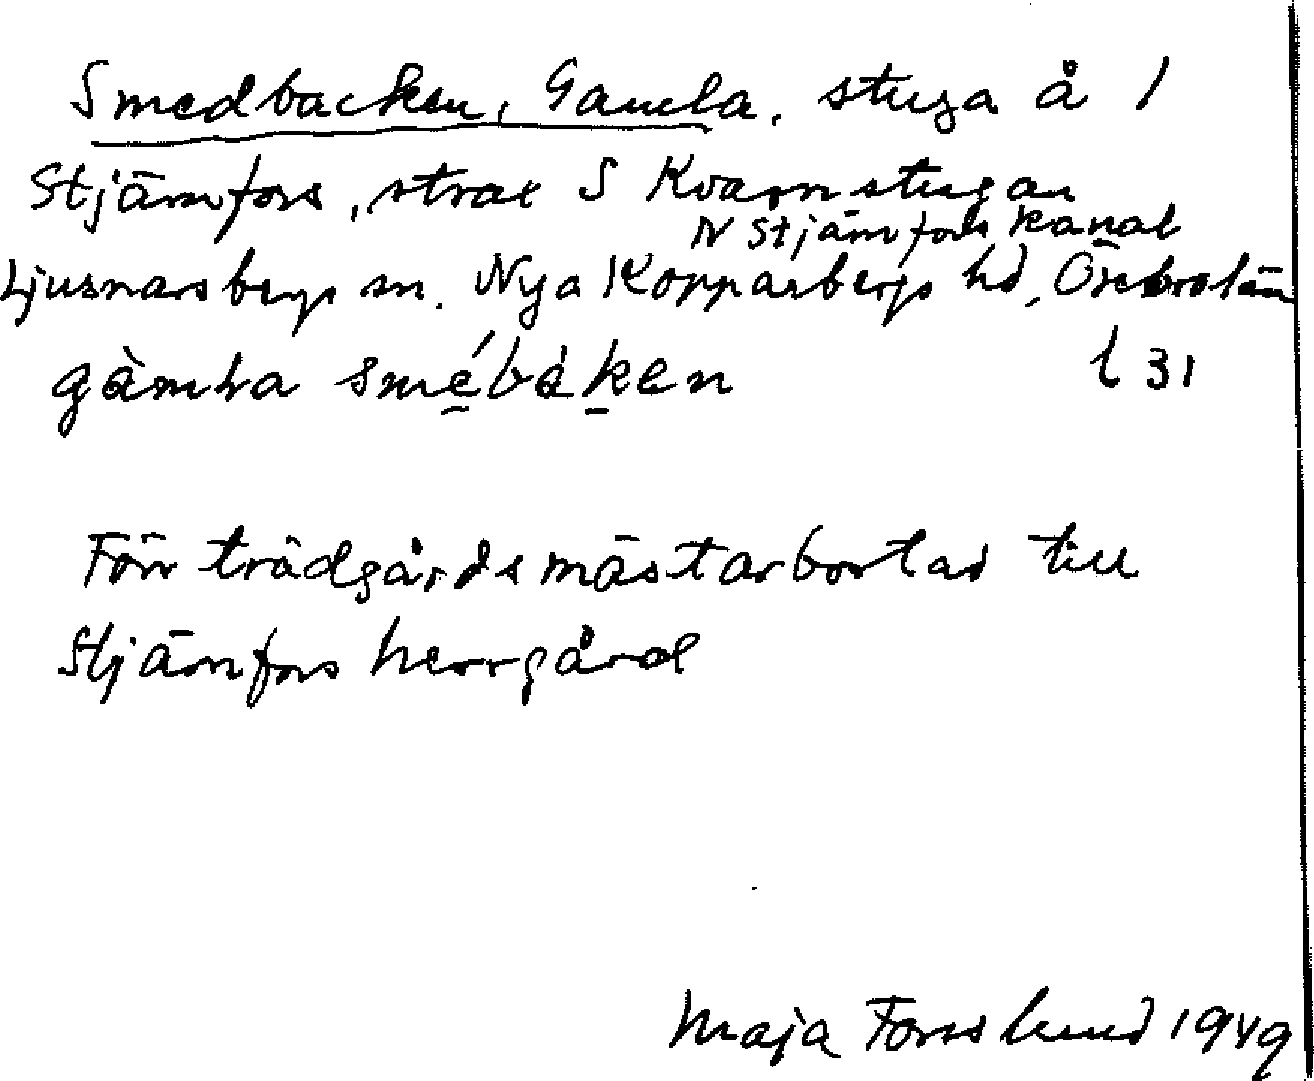 Smedbacken, Gamla, stuga å 1
Stjärnfors, strax S Kvarnstugan
N Stjärnfors kanal
Ljusnarsbergs sn. Nya Kopparbergs hd, Örebro län
gàmla smébàken l 31
Förr trädgårdsmästarbostad till
Stjärnfors herrgård
Maja Forsslund 1949